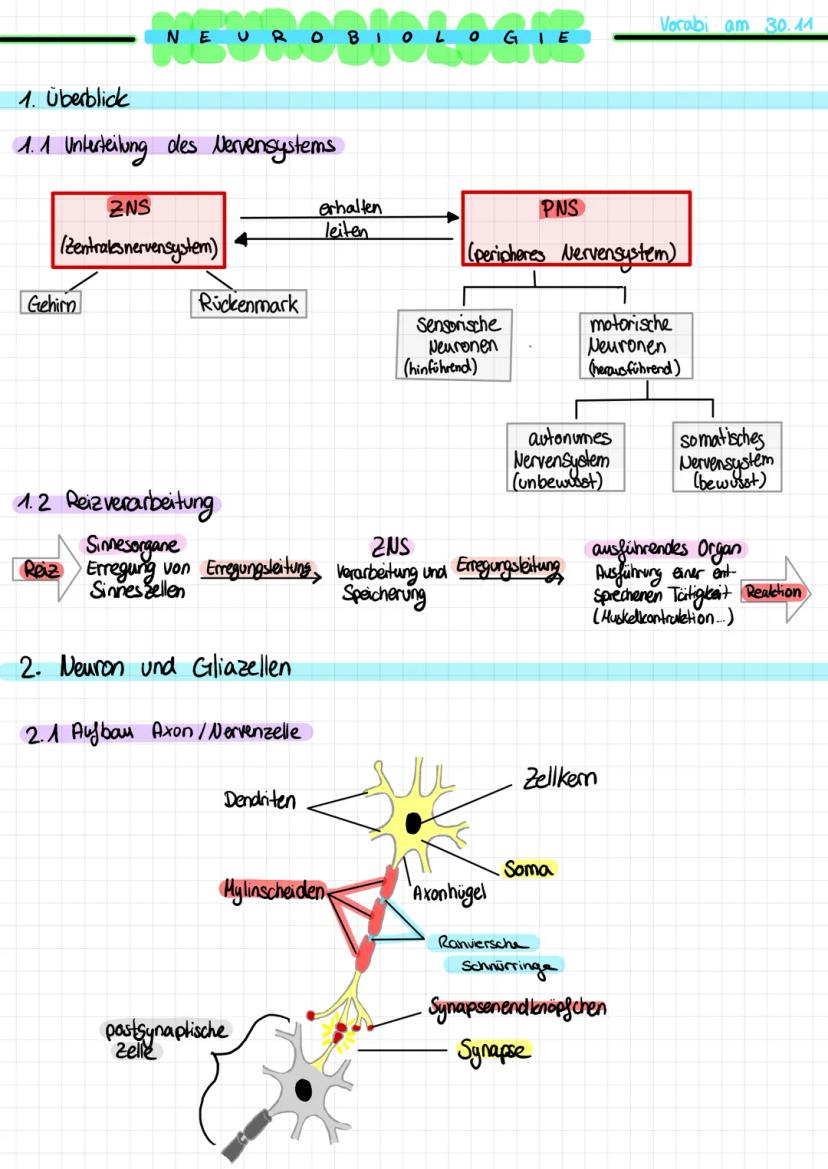 NEUROBIOLOGIE
Vorabi am 30.11
1. Überblick
1.1 Unterteilung des Nervensystems
ZNS
(Zentralesnervensystem)
erhalten
leiten
PNS
(peripheres Nervensystem)
Gehirn
Rückenmark
sensorische
Neuronen
(hinführend)
motorische
Neuronen
(herausführend)
autonomes
Nervensystem
(unbewusst)
somatisches
Nervensystem
(bewusst)
1.2 Reizverarbeitung
Reiz
Sinnesorgane
Erregung von
Sinneszellen
Erregungsleitung
ZNS
Verarbeitung und
Speicherung
Erregungsleitung
ausführendes Organ
Ausführung einer ent-
sprechenen Tätigkeit
(Muskelkontraktion...)
Reaktion
2. Neuron und Gliazellen
2.1 Aufbau Axon/Nervenzelle
Dendriten
Zellkern
Soma
Mylinscheiden
Axonhügel
Ranviersche
Schnürringe
Synapsenendknöpfchen
postsynaptische
Zelle
Synapse